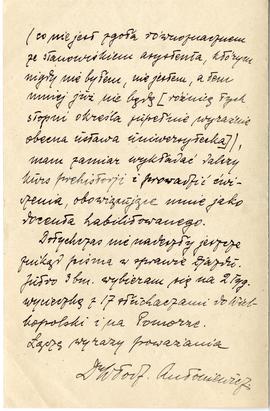 (co nie jest zgoła równoznacznem
ze stanowiskiem asystenta, którym
nigdy nie byłem, nie jestem, a tem
mniej już nie będę [różnicę tych
stopni określa zupełnie wyraźnie
obecna ustawa uniwersytecka]),
mam zamiar wykładać dalszy
kurs prehistorji i prowadzić ćwi-
czenia, obowiązujące mnie jako
docenta habilitowanego.
Dotychczas nie nadeszły jeszcze
znikąd pisma w sprawie
Jutro 3 bm. wybieram się na 2 tyg.
wycieczkę z 17 słuchaczami do Wiel-
kopolski i na Pomorze.
Łączę wyrazy poważania
Dr Włodz. Antoniewicz